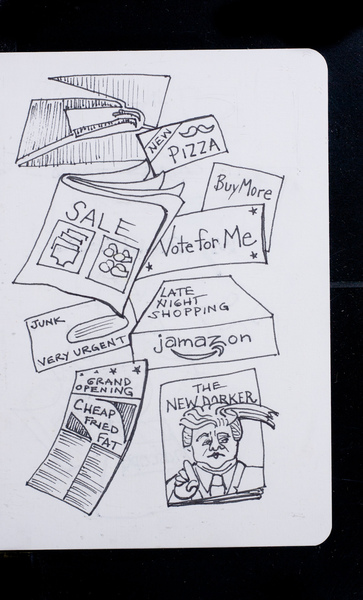 NEW
PIZZA
Buy More
SALE
Vote for Me
LATE
NIGHT
SHOPPING
jamazon
JUNK
VERY URGENT
GRAND
OPENING
CHEAP
FRIED
FAT
THE
NEW DORKER